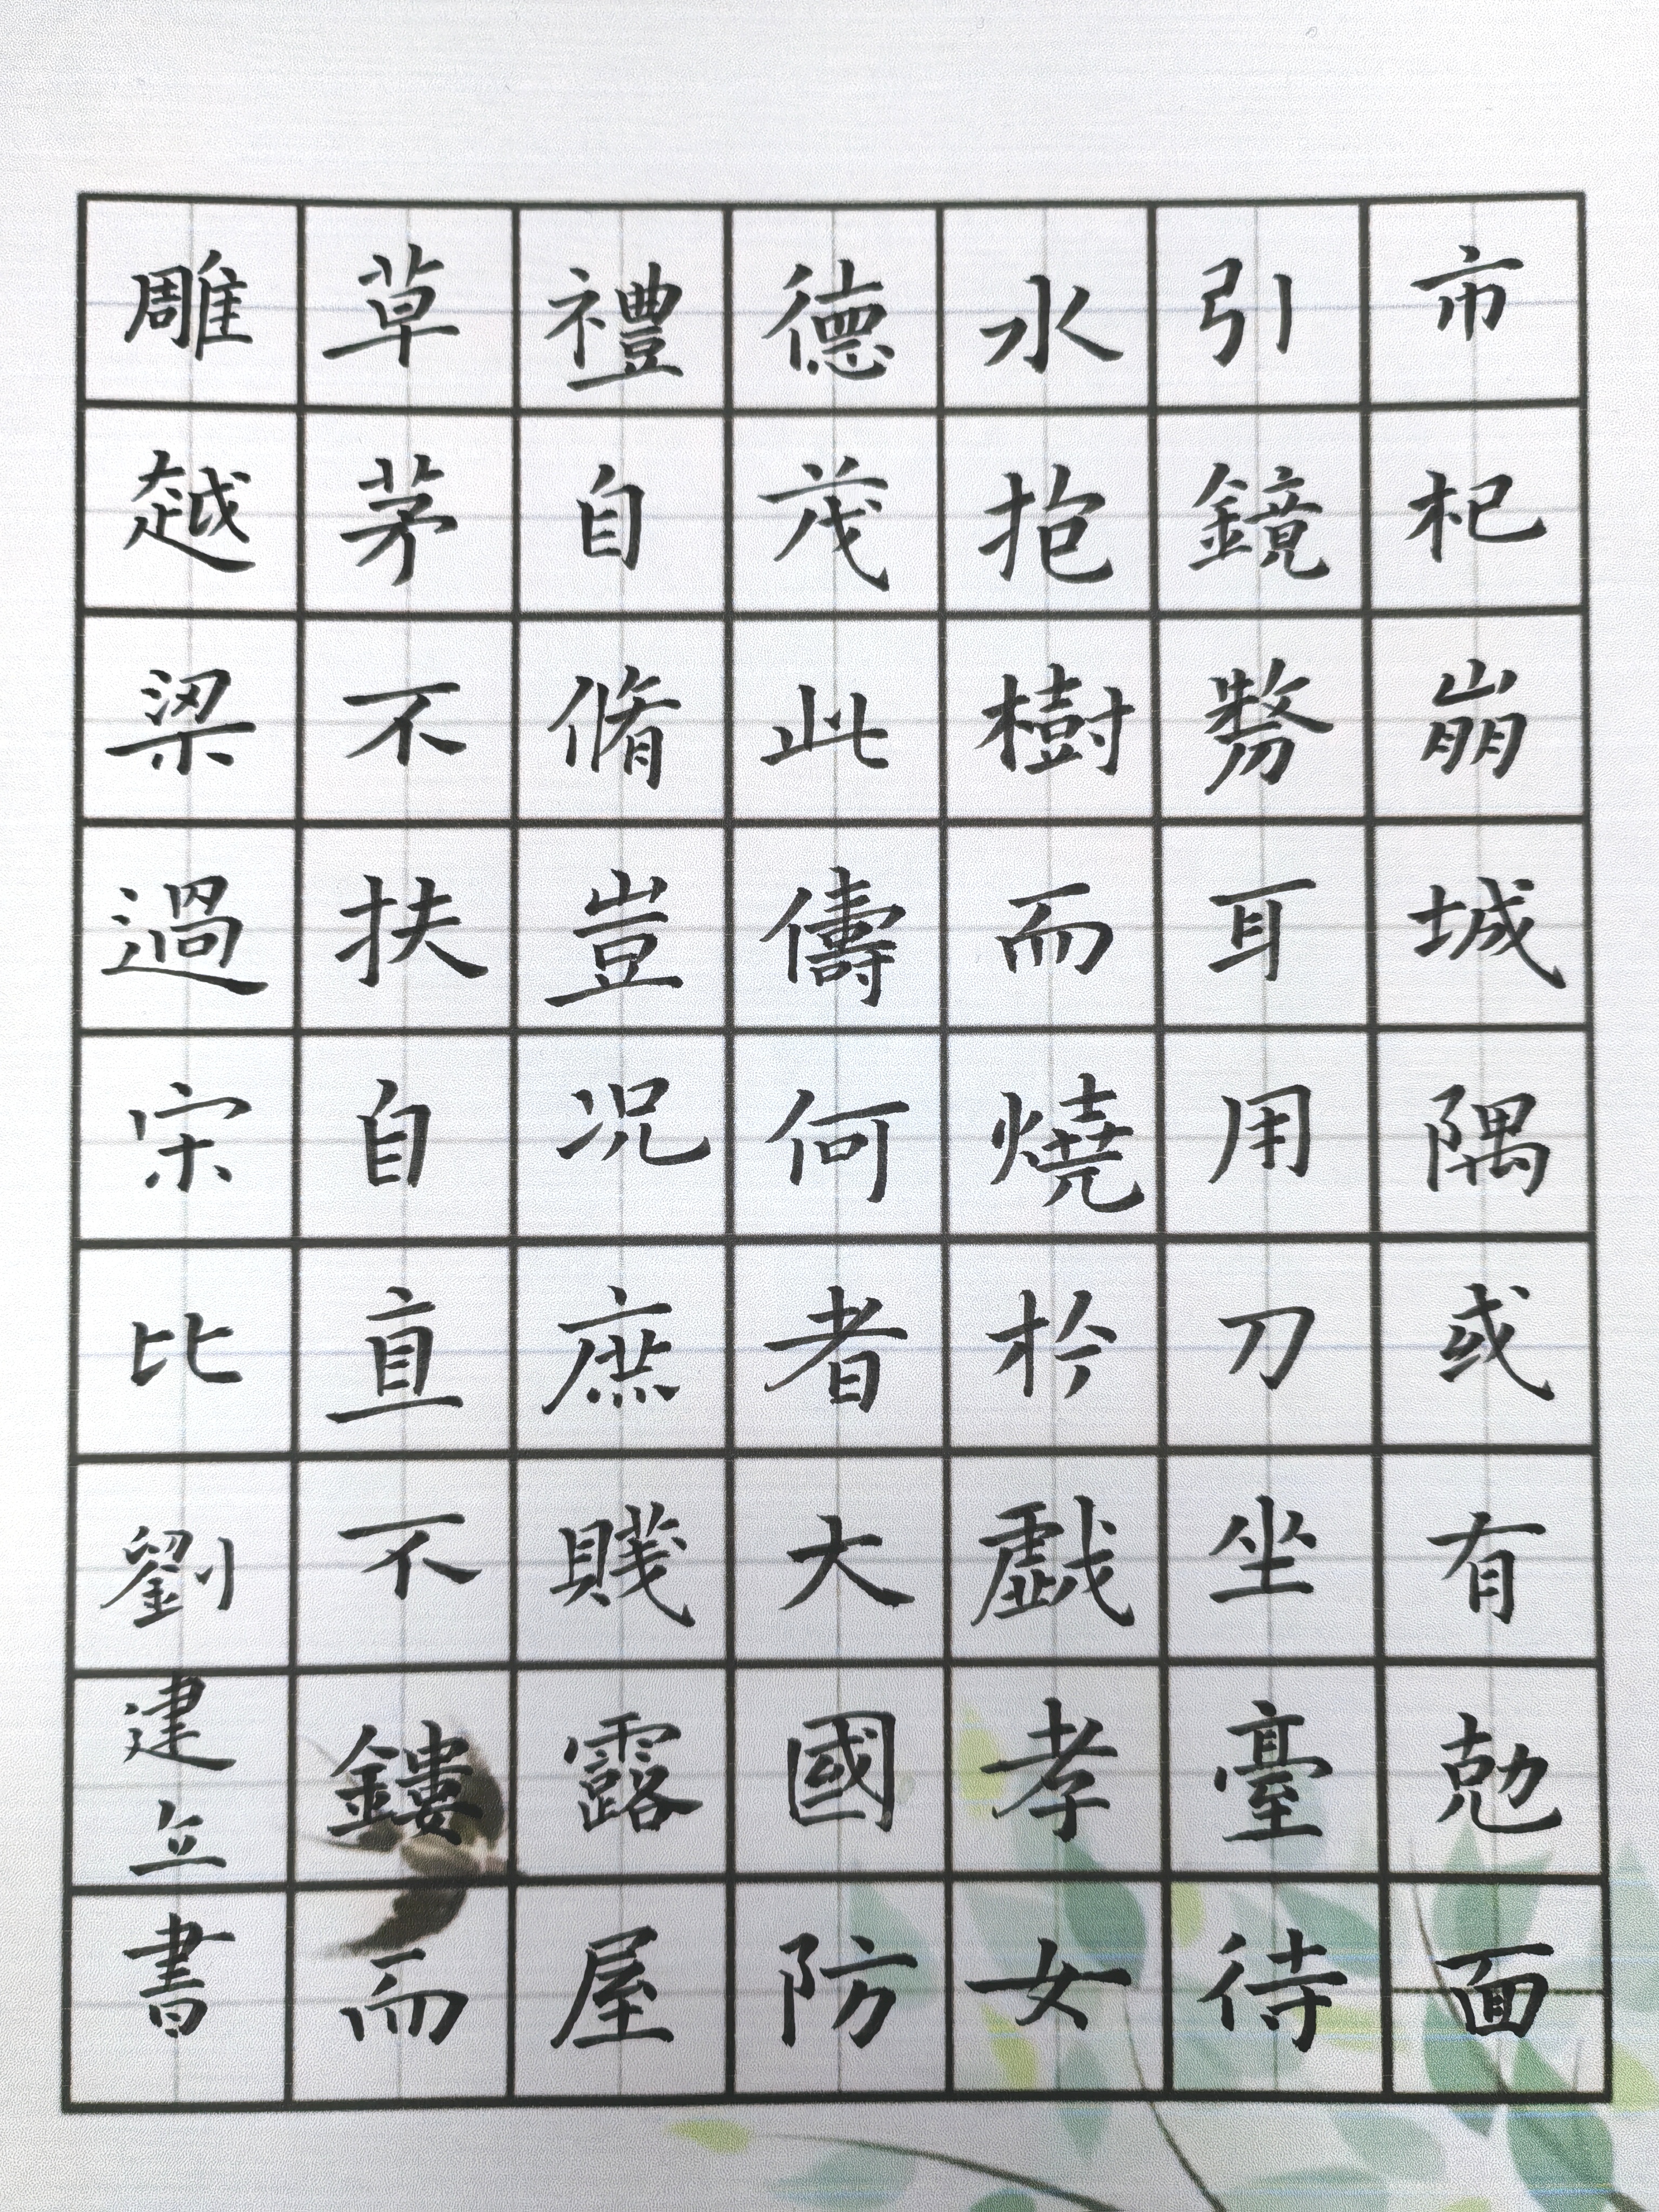 市杞崩城隅或有勊面
引鏡剺耳用刀坐臺待
水抱樹而燒於戲孝女
德茂此儔何者大國防
禮自脩豈況庶賤露屋
草茅不扶自直不鏤而
雕越梁過宋比劉建立書